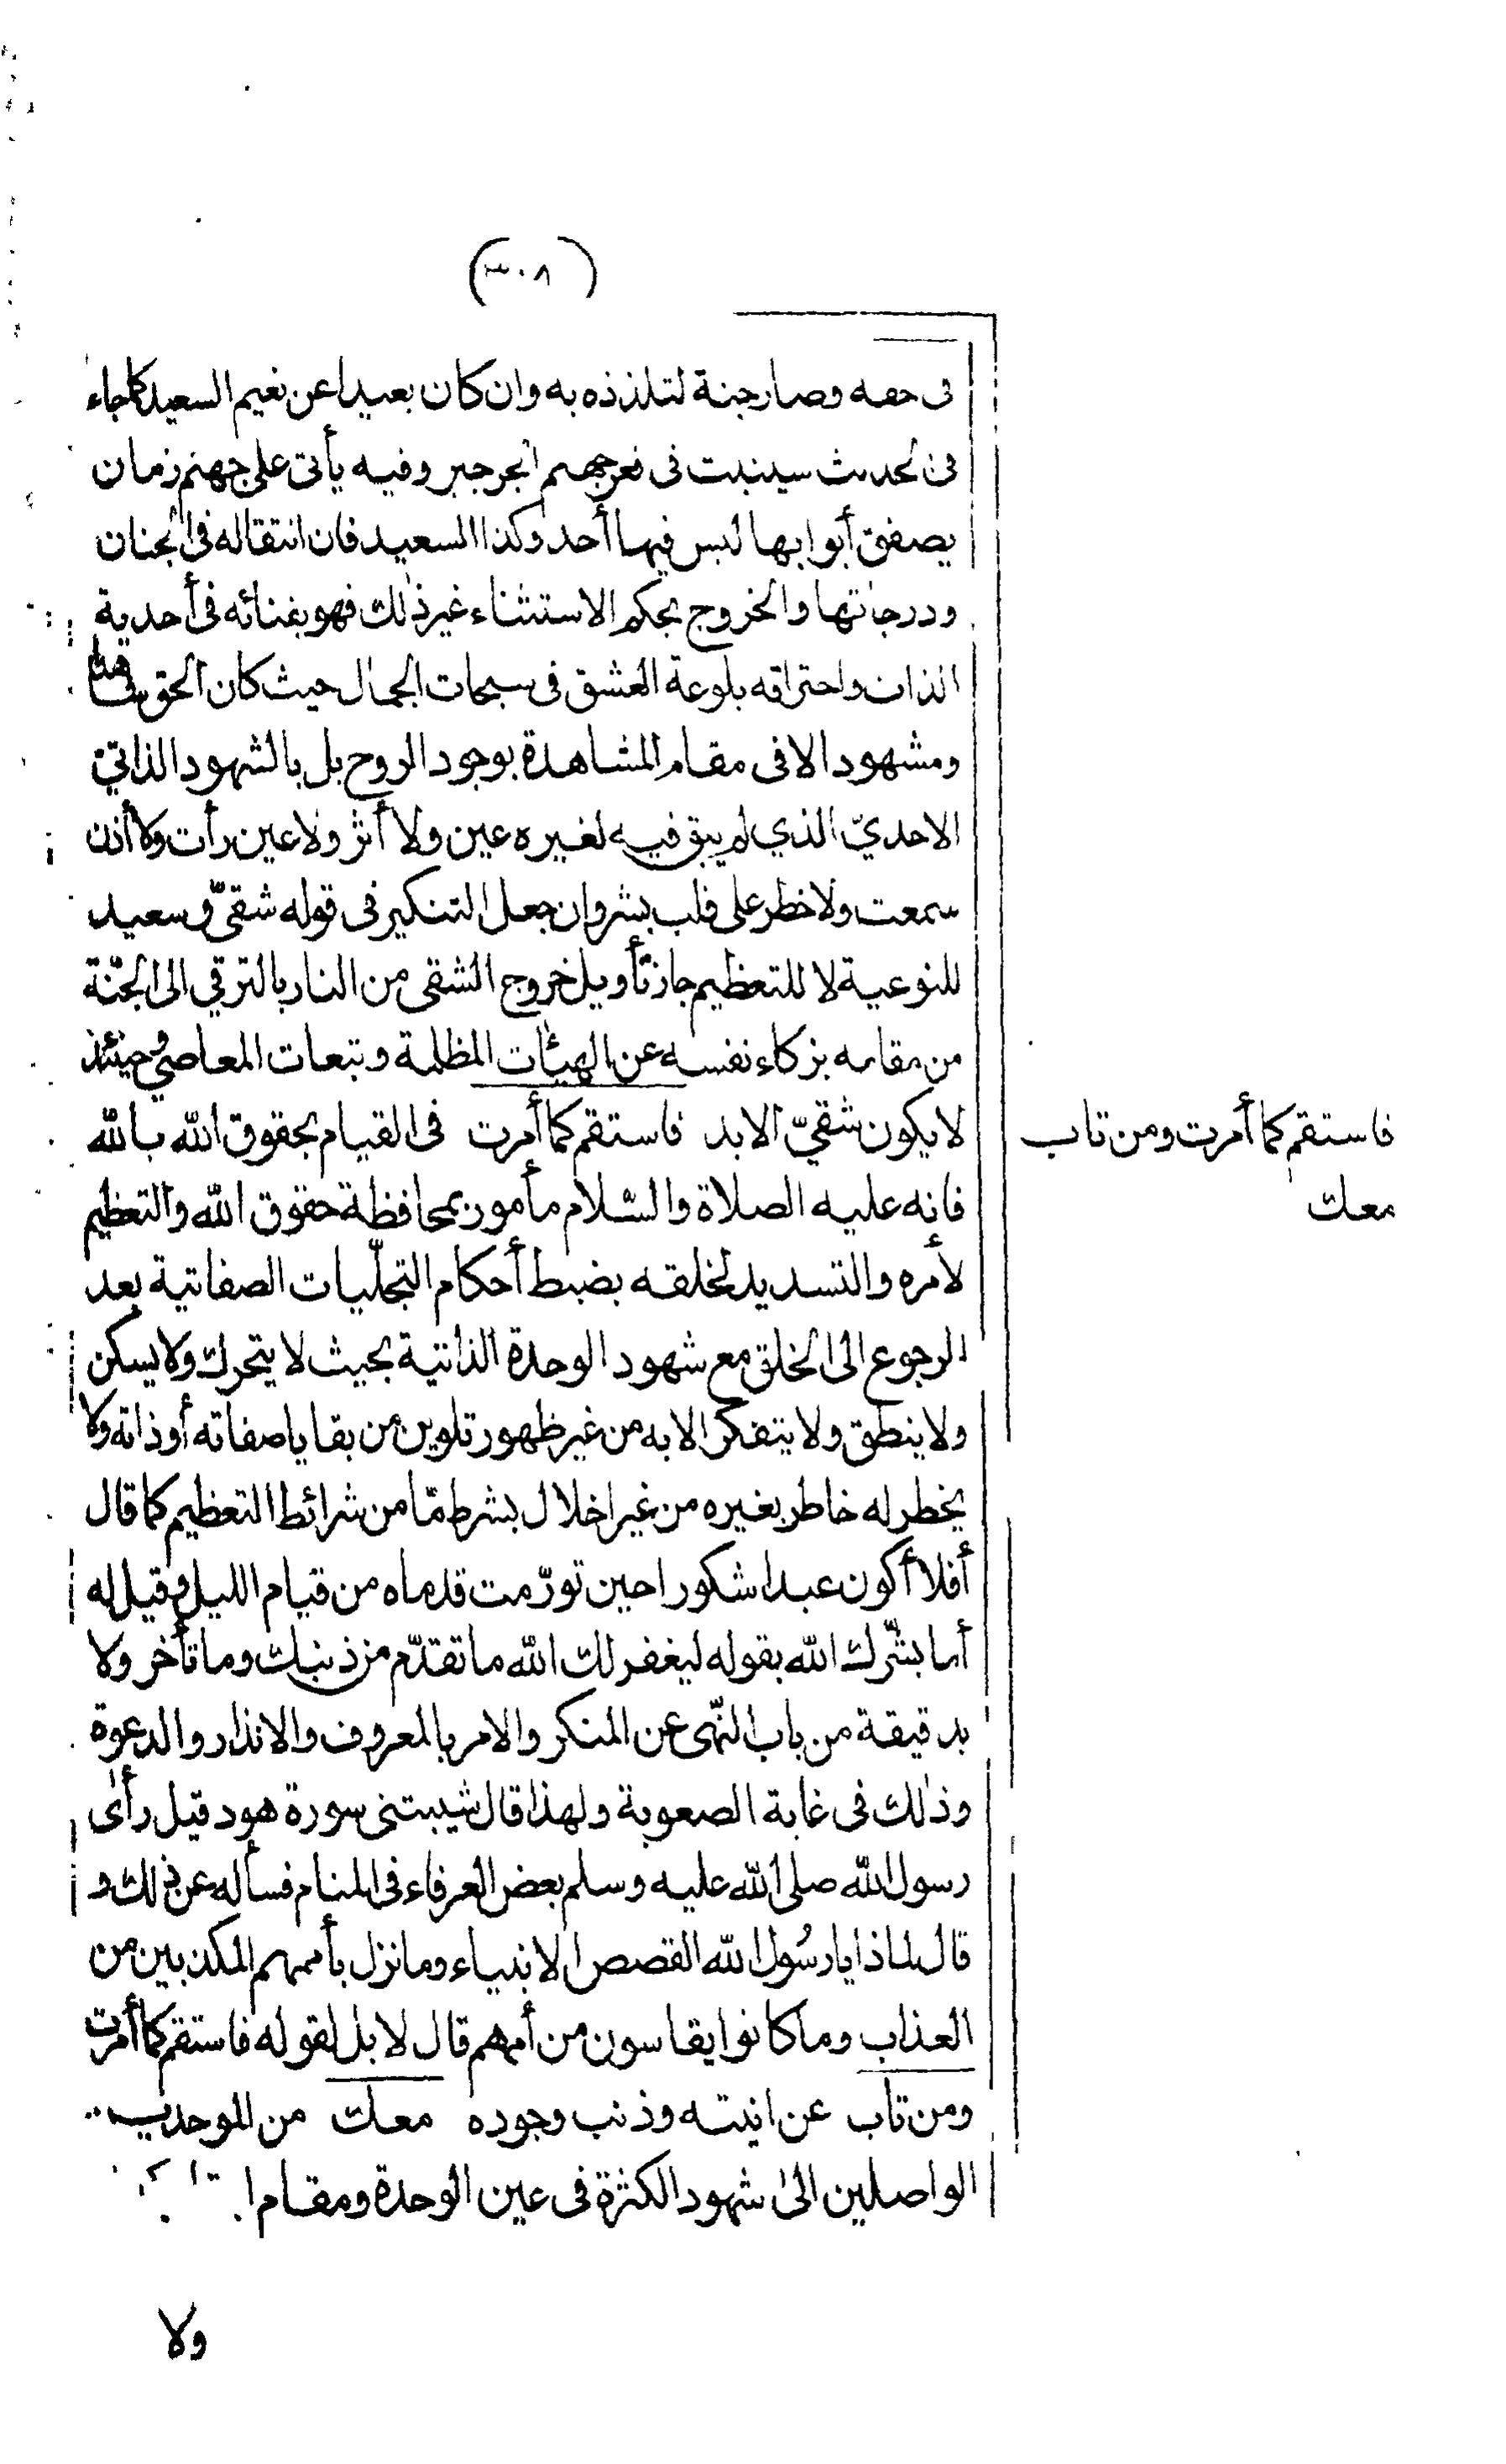 (٣٠٨)
فى حقه وصار جنة لتلذذه به وان كان بعيدا عن نعيم السعيد كما جاء
فى الحديث سينبت فى قعر جهنم الجرجير وفيه يأتى على جهنم زمان
يصفق أبوابها ليس فيها أحد وكذا السعيد فان انتقاله فى الجنان
ودرجاتها والخروج بحكم الاستثناء غير ذلك فهو بفنائه فى أحدية
الذات واحتراقه بلوعة العشق فى سبحات الجمال حيث كان الحق شاهدا
ومشهودا لا فى مقام المشاهدة بوجود الروح بل بالشهود الذاتيّ
الاحديّ الذي لم يبق فيه لغيره عين ولا أثر ولا عين رأت ولا أذن
سمعت ولا خطر على قلب بشر وان جعل التنكير فى قوله شقيّ وسعيد
للنوعية لا للتعظيم جاز تأويل خروج الشقى من النار بالترقي الى الجنّة
من مقامه بزكاء نفسه عن الهيئات المظلمة وتبعات المعاصي وحينئذ
لا يكون شقيّ الابد فاستقم كما أمرت فى القيام بحقوق الله بالله
فانه عليه الصلاة والسّلام مأمور بمحافظة حقوق الله والتعظيم
لأمره والتسديد لخلقه بضبط أحكام التجلّيات الصفاتية بعد
الرجوع الى الخلق مع شهود الوحدة الذاتية بحيث لا يتحرك ولا يسكن
ولا ينطق ولا يتفكر الا به من غير ظهور تلوين من بقايا صفاته أو ذاته ولا
يخطر له خاطر بغيره من غير اخلال بشرط مّا من شرائط التعظيم كما قال
أفلا أكون عبدا شكورا حين تورّمت قدماه من قيام الليل وقيل له
أما بشّرك الله بقوله ليغفر لك الله ما تقدّم من ذنبك وما تأخر ولا
بدقيقة من باب النّهى عن المنكر والامر بالمعروف والانذار والدعوة
وذلك فى غاية الصعوبة ولهذا قال شيبتنى سورة هود قيل رأى
رسول الله صلى الله عليه وسلم بعض العرفاء فى المنام فسأله عن ذلك و
قال لماذا يا رسُول الله القصص الانبياء وما نزل بأممهم المكذبين من
العذاب وما كانوا يقاسون من أممهم قال لا بل لقوله فاستقم كما أمرت
ومن تاب عن انيته وذنب وجوده معك من الموحدين
الواصلين الى شهود الكثرة فى عين الوحدة ومقام
ولا
فاستقم كما أمرت ومن تاب
معك